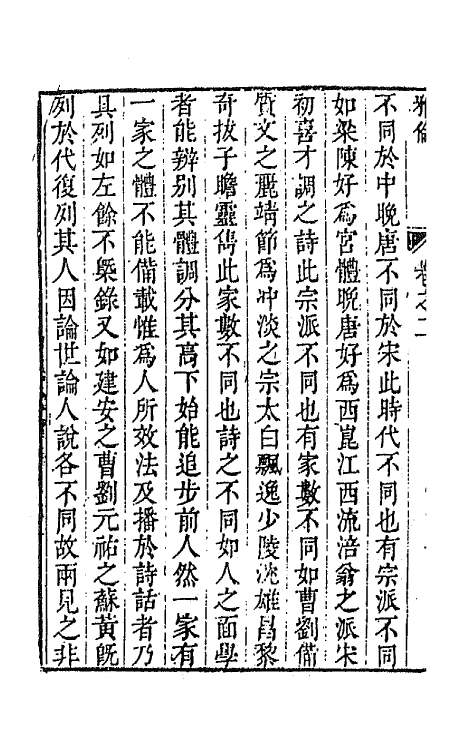 雅倫 卷之二
不同於中晚唐不同於宋此時代不同也有宗派不同
如梁陳好爲宮體晩唐好爲西崑江西流涪翁之派宋
初喜才調之詩此宗派不同也有家數不同如曹劉備
質文之麗靖節爲冲淡之宗太白飄逸少陵沈雄昌黎
奇拔子瞻靈雋此家數不同也詩之不同如人之面學
者能辨别其體調分其高下始能追步前人然一家有
一家之體不能備載惟爲人所效法及播於詩話者乃
具列如左餘不槩錄又如建安之曹劉元祐之蘇黃旣
列於代復列其人因論世論人說各不同故兩見之非